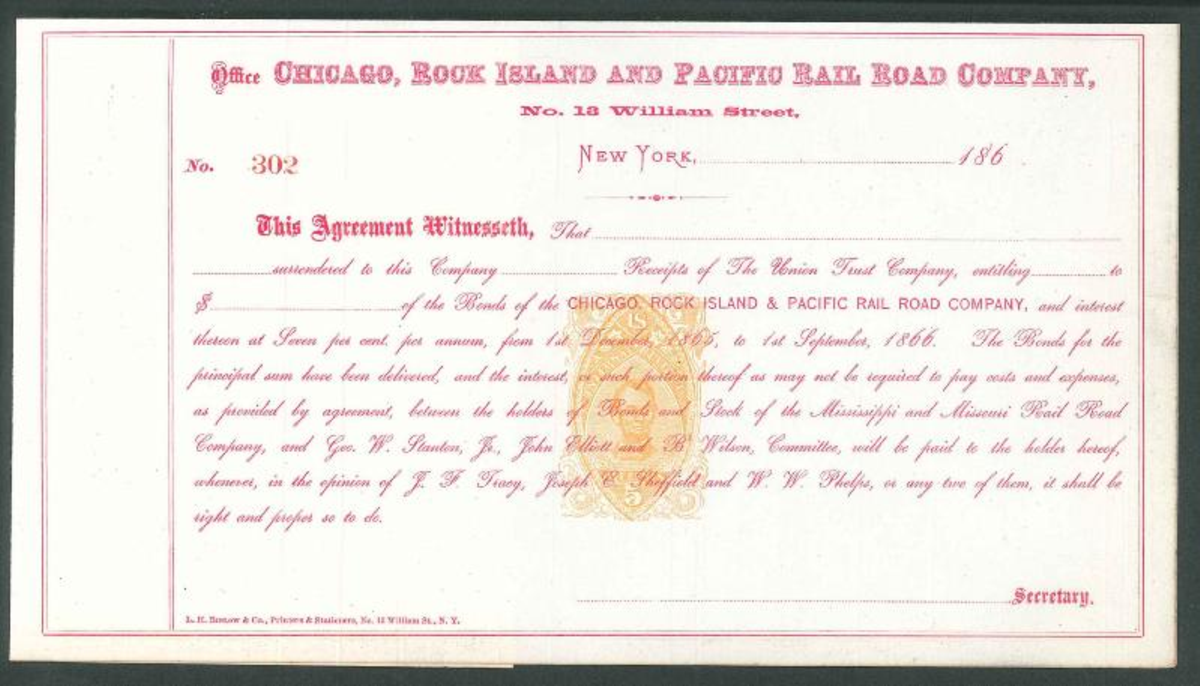 Office CHICAGO, ROCK ISLAND AND PACIFIC RAIL ROAD COMPANY,
No. 13 William Street,
No. 302
NEW YORK, 186
This Agreement Witnesseth, That
surrendered to this Company Receipts of The Union Trust Company, entitling to
$ of the Bonds of the CHICAGO, ROCK ISLAND & PACIFIC RAIL ROAD COMPANY, and interest
thereon at Seven per cent. per annum, from 1st December, 1865, to 1st September, 1866. The Bonds for the
principal sum have been delivered, and the interest, or such portion thereof as may not be required to pay costs and expenses,
as provided by agreement, between the holders of Bonds and Stock of the Mississippi and Missouri Rail Road
Company, and Geo. W. Stanton, Jr., John Elliott and B Wilson, Committee, will be paid to the holder hereof,
whenever, in the opinion of J. F. Tracy, Joseph E. Sheffield and W. W. Phelps, or any two of them, it shall be
right and proper so to do.
5
Secretary.
& Co., Printers & Stationers, No. 13 William St., N. Y.